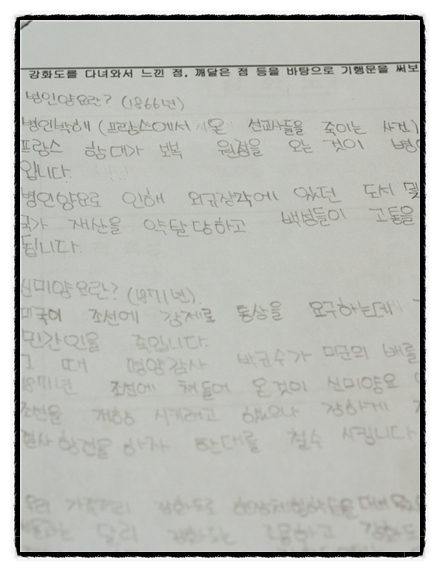 강화도를 다녀와서 느낀 점, 깨달은 점 등을 바탕으로 기행문을 써보
병인양요란? (1866년)
병인박해 (프랑스에서 온 선교사들을 죽이는 사건)
프랑스 함대가 보복 원정을 오는 것이 병인
입니다.
병인양요로 인해 외규장각에 있던 도서 및
국가 재산을 약탈 당하고 백성들이 고통을
됩니다.
신미양요란? (1871년).
미국이 조선에 강제로 통상을 요구하는데
민간인을 죽입니다.
그 때 평양감사 박규수가 미군의 배를
1871년 조선에 쳐들어 온 것이 신미양요
조선을 개항 시키려고 했으나 강하게
결사항전을 하자 군대를 철수 시킵니다
우리 가족끼리 강화도로
달리 강화도는 조용하고 강화도